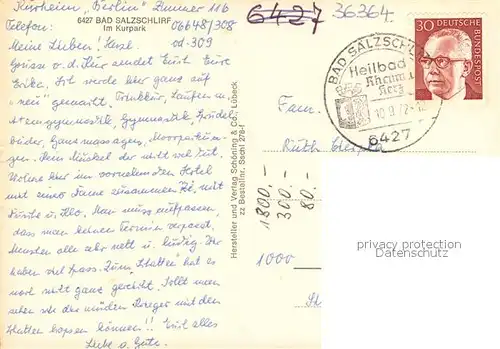 Kurheim „Berlin" Zimmer 116
6427 BAD SALZSCHLIRF
Im Kurpark
Telefon: 06648/308
od. 309
6427
36364
Meine Lieben! Herzl.
Grüße v. d. Kur sendet Euch Eure
Erika. Ich werde hier ganz auf
„neu" gemacht. Trinkkur, Laufen, m.
Atemgymnastik, Gymnastik, Sprudel
bäder, Ganzmassagen, Moorpackun-
gen. Kein Muskel der nicht weh tut.
Wohne hier im vornehmsten Hotel
mit einer Dame zusammen, mit
Dusche u. Klo. Man muß aufpassen,
dass man keinen Termin verpasst.
Menschen alle sehr nett u. lustig. Wir
haben viel Spass. Zum
noch nicht ganz gereicht. Sollt mal
sehen wie die müden Krieger mit den
hopsen können!! Euch alles
Liebe u. Gute.
Hersteller und Verlag Schöning & Co., Lübeck
zz Bestellnr. Sachl 278-f
BAD SALZSCHLIRF
Heilbad
Rheuma
Herz
10.9.72
6427
30 DEUTSCHE
BUNDESPOST
Fam.
Ruth
1000
1800.-
300.-
80.-
privacy protection
Datenschutz